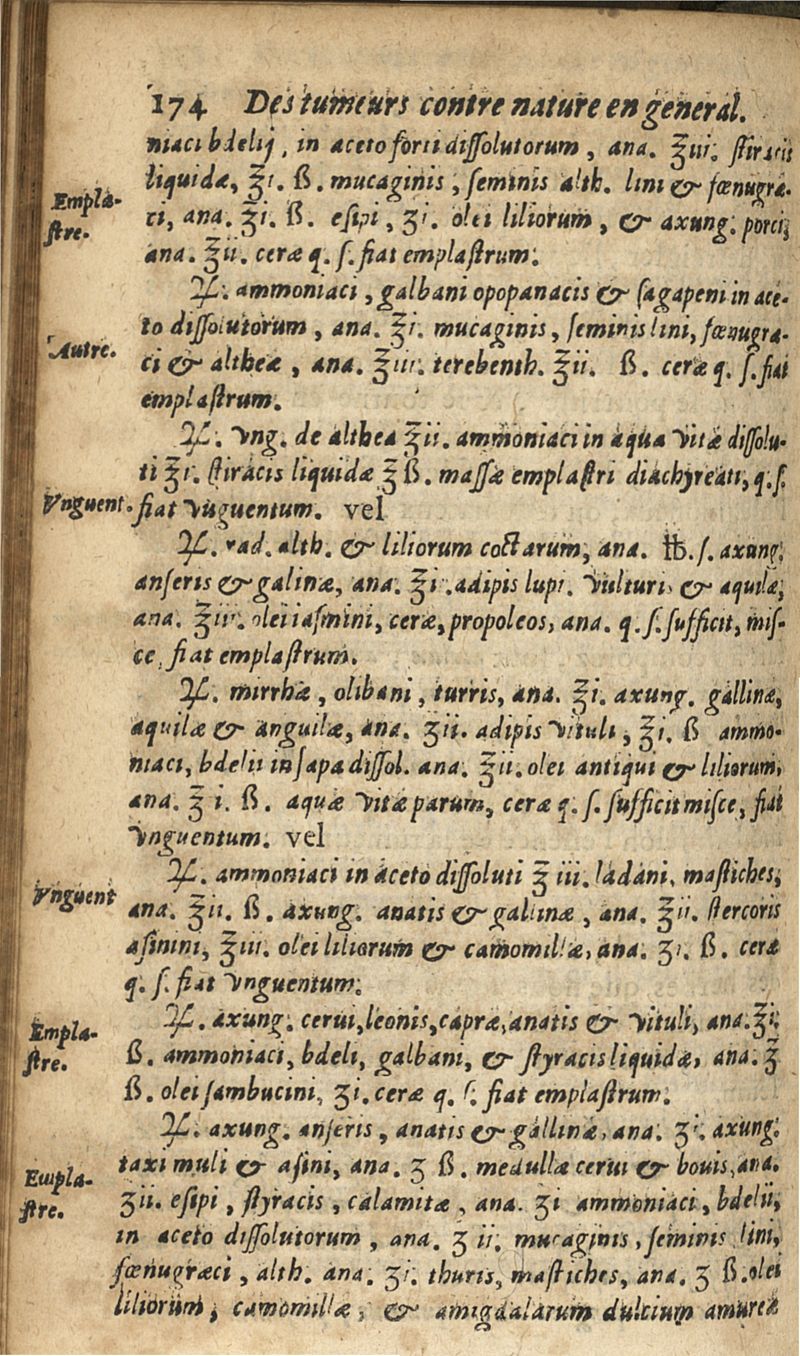 174 Des tumeurs contre nature en general.
niaci bdelij, in aceto forti dissolutorum, ana. ℥iii. stiracis
liquidæ, ℥i. ß. mucaginis, seminis alth. lini & fœnugræ-
Emplastre.
ci, ana. ℥i. ß. esipi, ʒi. olei liliorum, & axung. porci,
ana. ℥ii. ceræ q. s. fiat emplastrum.
♃. ammoniaci, galbani opopanacis & sagapeni in ace-
to dissolutorum, ana. ℥i. mucaginis, seminis lini, fœnugra-
Autre.
ci & altheæ, ana. ℥iii. terebenth. ℥ii. ß. ceræ q. s. fiat
emplastrum.
♃. Vng. de althea ℥ii. ammoniaci in aqua vitæ dissolu-
ti ℥i. stiracis liquidæ ℥ß. massæ emplastri , q. s.
Vnguent.
fiat vnguentum. vel
♃. rad. alth. & liliorum coctarum, ana. ℔. s. axung.
anseris & galinæ, ana. ℥i. adipis lupi. vulturi, & aquilæ,
ana. ℥iii. olei iasmini, ceræ, propoleos, ana. q. s. sufficit, mis-
ce, fiat emplastrum.
♃. mirrhæ, olibani, turris, ana. ℥i. axung. gallinæ,
aquilæ & anguilæ, ana. ʒii. adipis vituli, ℥i. ß ammo-
niaci, bdelii in sapa dissol. ana. ℥ii. olei antiqui & liliorum,
ana. ℥ i. ß. aquæ vitæ parum, ceræ q. s. sufficit misce, fiat
vnguentum. vel
♃. ammoniaci in aceto dissoluti ℥ iii. ladani, mastiches,
Vnguent
ana. ℥ii. ß. axung. anatis & gallinæ, ana. ℥ii. stercoris
asinini, ℥iii. olei liliorum & camomillæ, ana. ʒi. ß. ceræ
q. s. fiat vnguentum.
♃. axung. cerui, leonis, capræ, anatis & vituli, ana. ℥i.
Emplastre.
ß. ammoniaci, bdeli, galbani, & styracis liquidæ, ana. ℥
ß. olei sambucini, ʒi. ceræ q. s. fiat emplastrum.
♃. axung. anseris, anatis & gallinæ, ana. ʒi. axung.
Emplastre.
taxi muli & asini, ana. ʒ ß. medullæ cerui & bouis, ana.
ʒii. esipi, styracis, calamitæ, ana. ʒi ammoniaci, bdelii,
in aceto dissolutorum, ana. ʒ ii. mucaginis, seminis lini,
fœnugræci, alth. ana. ʒi. thuris, mastiches, ana. ʒ ß. olei
liliorum, camomillæ, & amigdalarum dulcium amurcæ